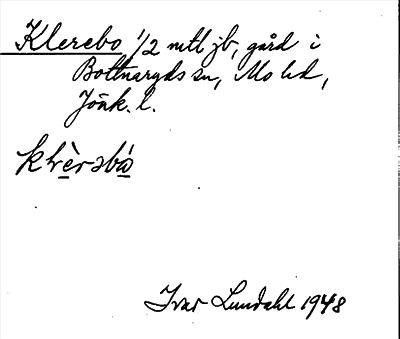 Klerebo 1/2 mtl jb, gård i
Bottnaryds sn, Mo hd,
Jönk. l.
klèrəbó
Ivar Lundahl 1948